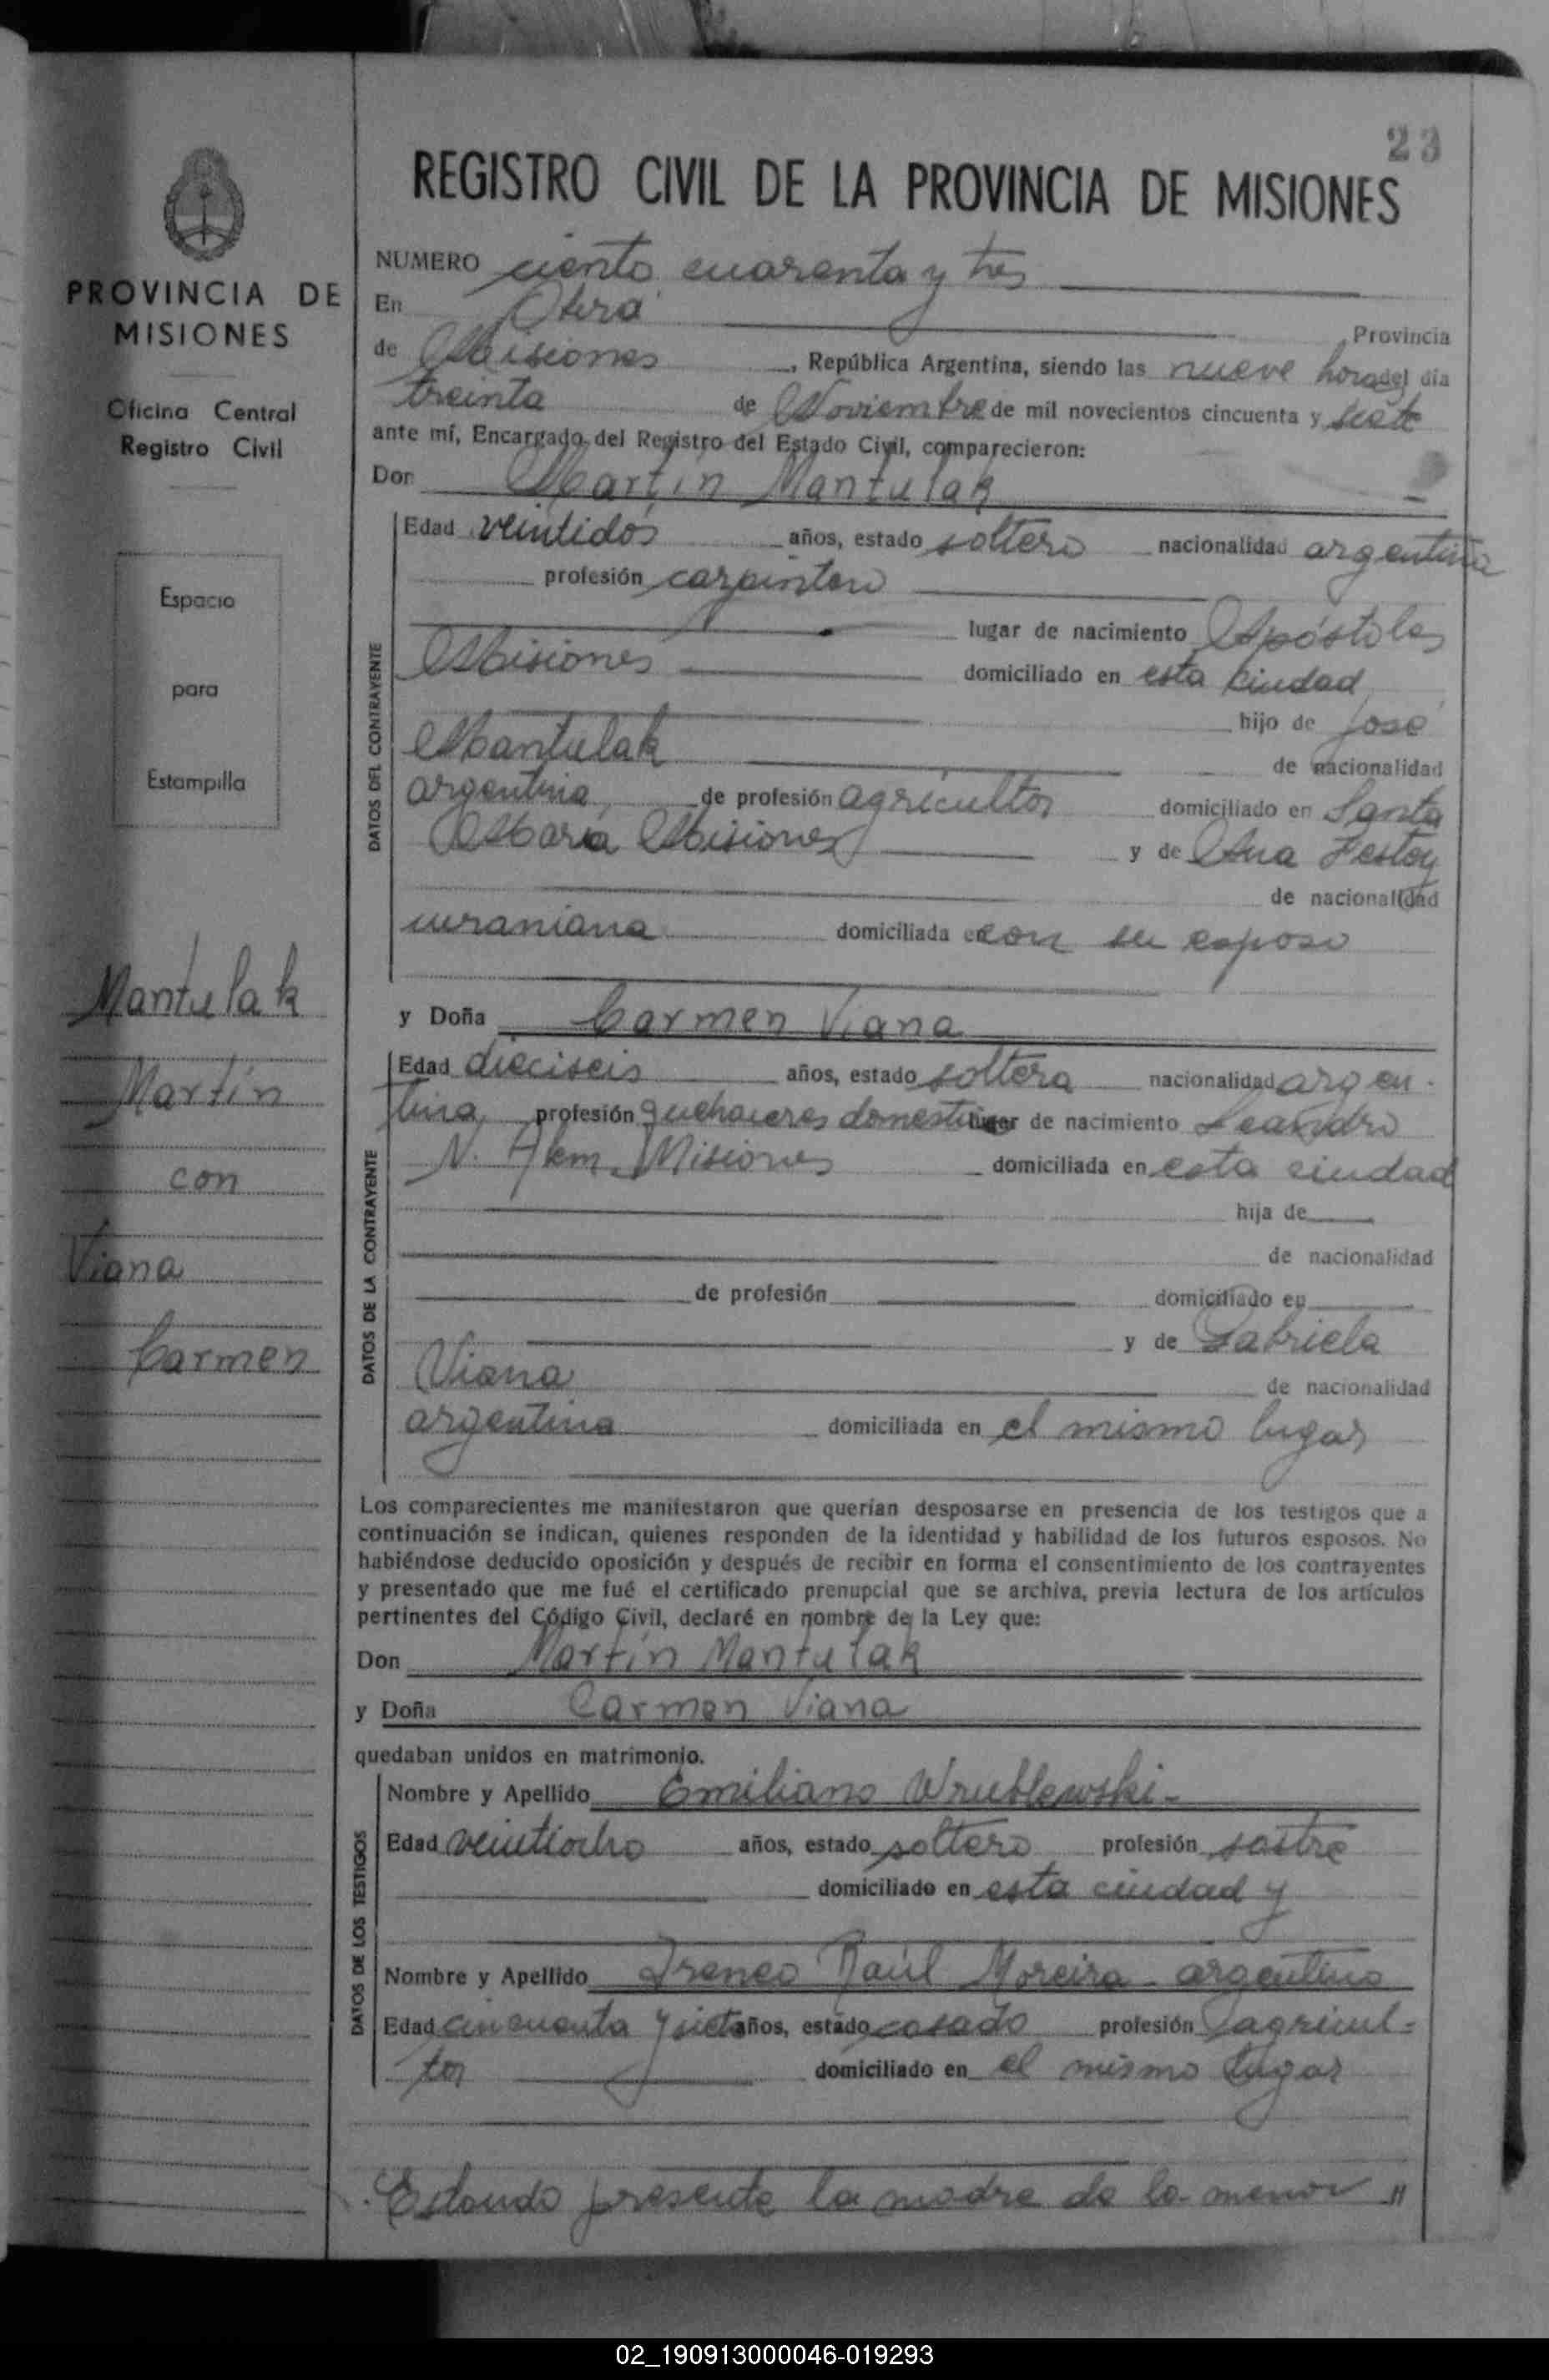 23
REGISTRO CIVIL DE LA PROVINCIA DE MISIONES
PROVINCIA DE
MISIONES
Oficina Central
Registro Civil
Espacio
para
Estampilla
Mantulak
Martín
con
Viana
Carmen
NUMERO ciento cuarenta y tres
En Oberá Provincia
de Misiones, República Argentina, siendo las nueve horas del día
treinta de Noviembre de mil novecientos cincuenta y siete
ante mí, Encargado del Registro del Estado Civil, comparecieron:
Don Martín Mantulak
DATOS DEL CONTRAYENTE
Edad veintidós años, estado soltero nacionalidad argentina
profesión carpintero
lugar de nacimiento Apóstoles
Misiones domiciliado en esta ciudad
hijo de José
Mantulak de nacionalidad
argentina de profesión agricultor domiciliado en Santa
María Misiones y de Ana
de nacionalidad
ucraniana domiciliada en con su esposo
y Doña Carmen Viana
DATOS DE LA CONTRAYENTE
Edad dieciseis años, estado soltera nacionalidad argen-
tina profesión quehaceres domesticos lugar de nacimiento Leandro
N. Alem Misiones domiciliada en esta ciudad
hija de
de nacionalidad
de profesión domiciliado en
y de Gabriela
Viana de nacionalidad
argentina domiciliada en el mismo lugar
Los comparecientes me manifestaron que querían desposarse en presencia de los testigos que a
continuación se indican, quienes responden de la identidad y habilidad de los futuros esposos. No
habiéndose deducido oposición y después de recibir en forma el consentimiento de los contrayentes
y presentado que me fué el certificado prenupcial que se archiva, previa lectura de los artículos
pertinentes del Código Civil, declaré en nombre de la Ley que:
Don Martín Mantulak
y Doña Carmen Viana
quedaban unidos en matrimonio.
DATOS DE LOS TESTIGOS
Nombre y Apellido Emiliano Wrublewski-
Edad veintiocho años, estado soltero profesión sastre
domiciliado en esta ciudad y
Nombre y Apellido Ireneo Raúl Moreira - argentino
Edad cincuenta y siete años, estado casado profesión agricul-
tor domiciliado en el mismo lugar
Estando presente la madre de la menor "
02_190913000046-019293